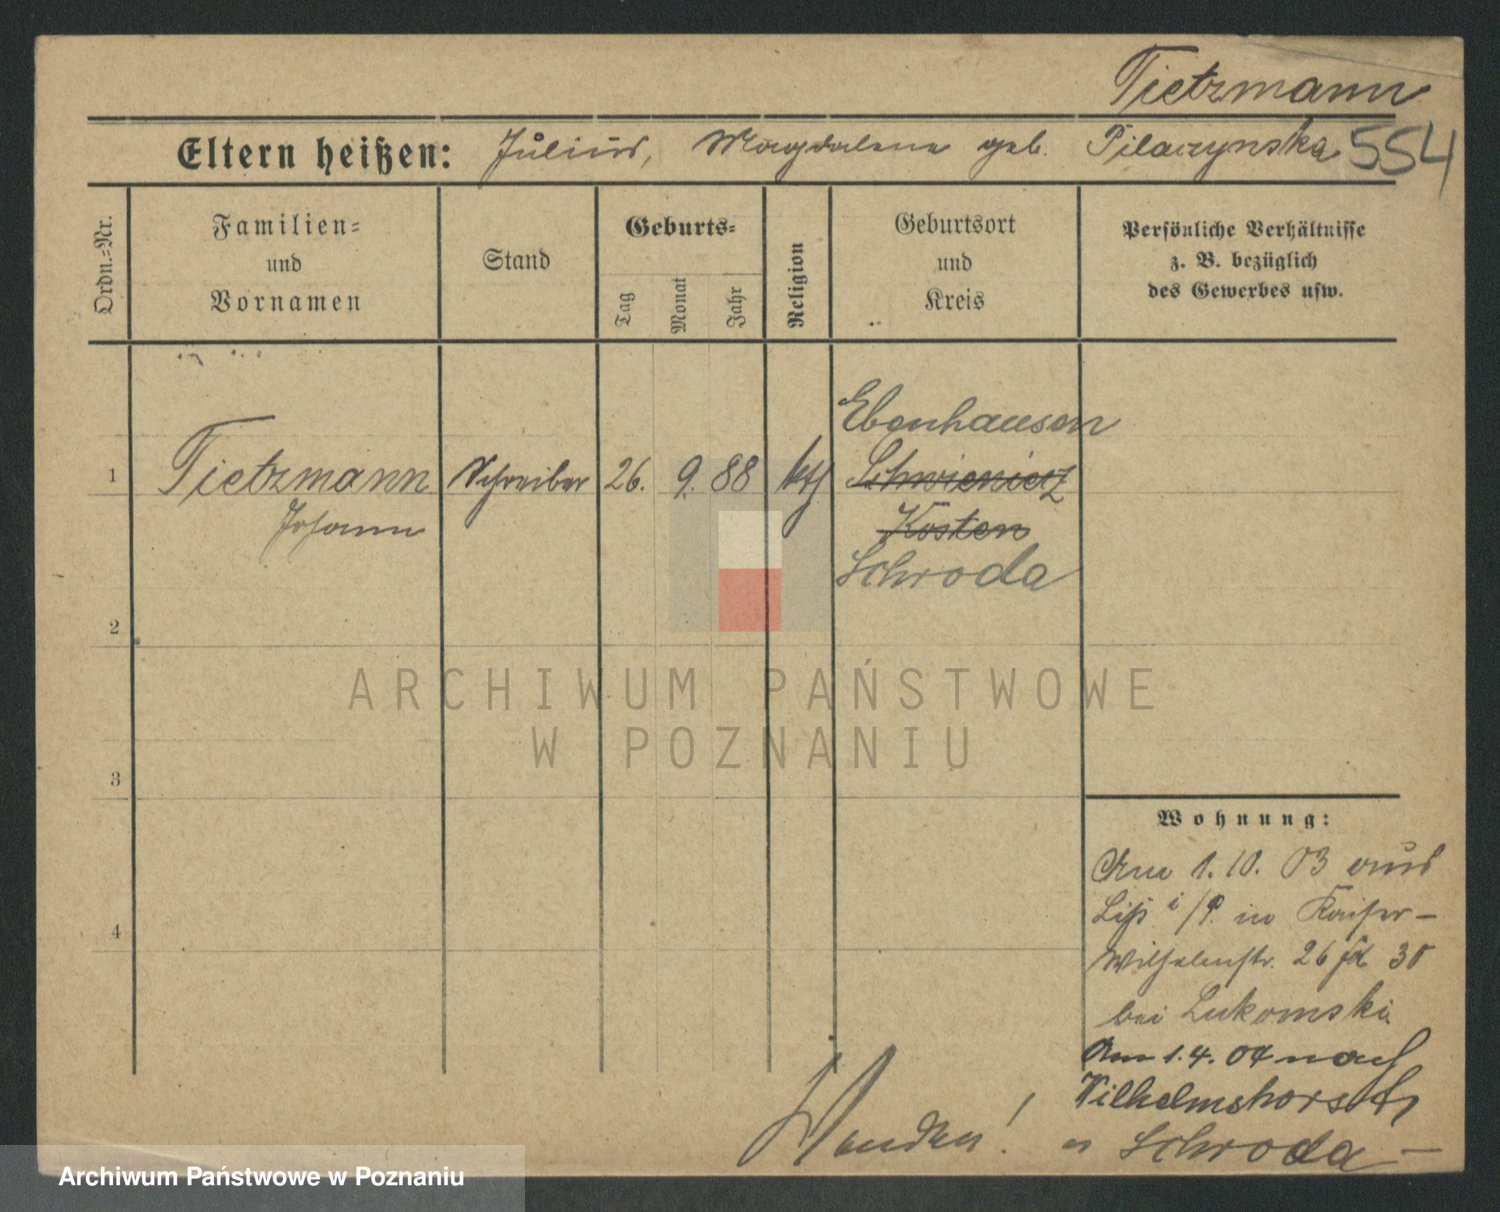 Tietzmann
Eltern heißen: Julius, Magdalena geb. Pilaczynska 554
Ordn.=Nr.
Familien=
und
Vornamen
Stand
Geburts=
Tag
Monat
Jahr
Religion
Geburtsort
und
Kreis
Persönliche Verhältnisse
z. B. bezüglich
des Gewerbes usw.
Ebenhausen
1 Tietzmann Schreiber 26. 9. 88 kth Schwieniecz
Johann Kosten
Schroda
2
3
4
Wohnung:
Am 1.10.03 aus
Liss. i/P. in Kaiser-
Wilhelmstr. 26 30
bei Lukomski
Am 1.4.04 nach
Wilhelmshorst
Schroda
Wenden!
ARCHIWUM PAŃSTWOWE
W POZNANIU
Archiwum Państwowe w Poznaniu